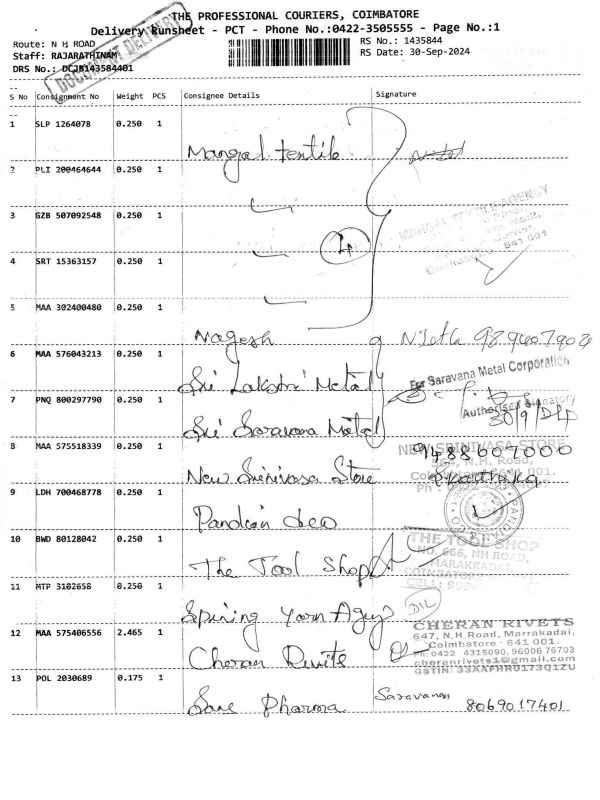 THE PROFESSIONAL COURIERS, COIMBATORE
Delivery Runsheet - PCT - Phone No.:0422-3505555 - Page No.:1
Route: N H ROAD
RS No.: 1435844
Staff: RAJARATHINAM
RS Date: 30-Sep-2024
DRS No.: DCJB143584401
DOCUMENT DELIVERY
S No Consignment No Weight PCS Consignee Details Signature
1 SLP 1264078 0.250 1
Mangal textile
2 PLI 200464644 0.250 1
3 GZB 507092548 0.250 1
4
641 001
4 SRT 15363157 0.250 1
5 MAA 302400480 0.250 1
Nagesh
6 MAA 576043213 0.250 1
Sri Lakshmi Metal
For Saravana Metal Corporation
7 PNQ 800297790 0.250 1
Authorised Signatory
Sri Saravana Metal
8 MAA 575518339 0.250 1
NEW SRINIVASA STORE
9488607000
N.H. Road,
New Srinivasa Store
9 LDH 700468778 0.250 1
Pandian
10 BWD 80128042 0.250 1
THE TOOL SHOP
NO. 666, NH ROAD,
MARAKKADAI,
COIMBATORE
The Tool Shop
11 MTP 3102658 0.250 1
Yarn
12 MAA 575406556 2.465 1
CHERAN RIVETS
647, N.H.Road, Marrakadai,
Coimbatore - 641 001.
Ph: 0422 4315090, 96006 76703
cheranrivets1@gmail.com
GSTIN: 33AAFHR0173Q1ZU
Cheran Rivets
13 POL 2030689 0.175 1
Saravanan
Pharma
8069017401